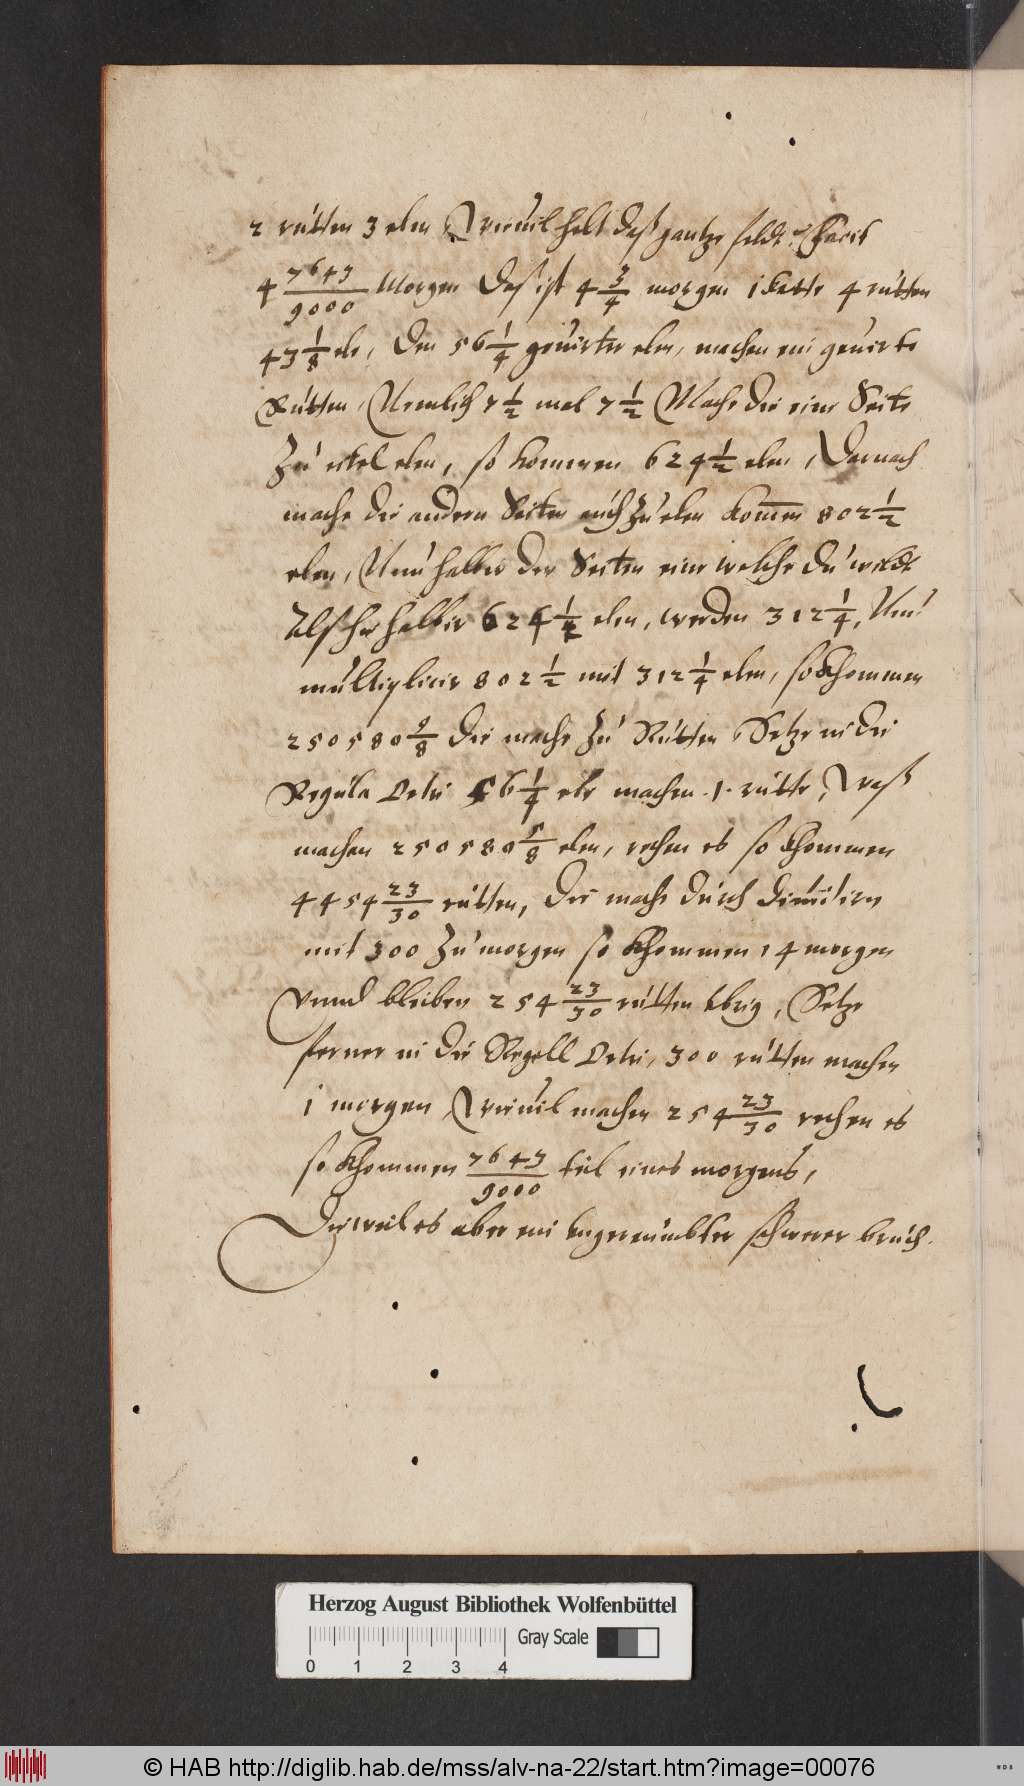 2 rutten 3 elen Wieuil helt daß gantze feldt? Facit
4 7643/9000 Morgen Das ist 4 3/4 morgen 1 kette 4 rutten
43 1/8 ele, Den 56 1/4 geuirter elen, machen ein geuirte
Rutten, Nemlich 7 1/2 mal 7 1/2 Mache die eine Seite
Zu eitel elen, so komen 624 1/2 elen, Darnach
mache die andern Seiten auch zu elen komen 802 1/2
elen, Nun halbir der Seiten eine welche du wildt
Als hie halbir 624 1/2 elen, werden 312 1/4, Nun
multiplicir 802 1/2 mit 312 1/4 elen, so khommen
250580 5/8 die mache zu Rutten Setze in die
Regula Detri 56 1/4 ele machen .1. rutte, Waß
machen 250580 5/8 elen, rechen es so khommen
4454 23/30 rutten, Die mache durch diuidiren
mit 300 Zu morgen so khommen 14 morgen
Vnnd bleiben 254 23/30 rutten vbrig, Setze
ferner in die Regell Detri, 300 rutten machen
1 morgen, Wieuil machen 254 23/30 rechen es
so khommen 7643/9000 teil eines morgens,
Dieweil es aber ein vngereimbter schwerer bruch
Herzog August Bibliothek Wolfenbüttel
Gray Scale
0 1 2 3 4
© HAB http://diglib.hab.de/mss/alv-na-22/start.htm?image=00076